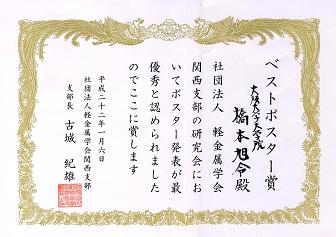 ベストポスター賞
大阪大学大学院
橋本旭令殿
社団法人 軽金属学会
関西支部の研究会にお
いてポスター発表が最
優秀と認められました
のでここに賞します
平成二十二年一月六日
社団法人軽金属学会関西支部
支部長 古城 紀雄